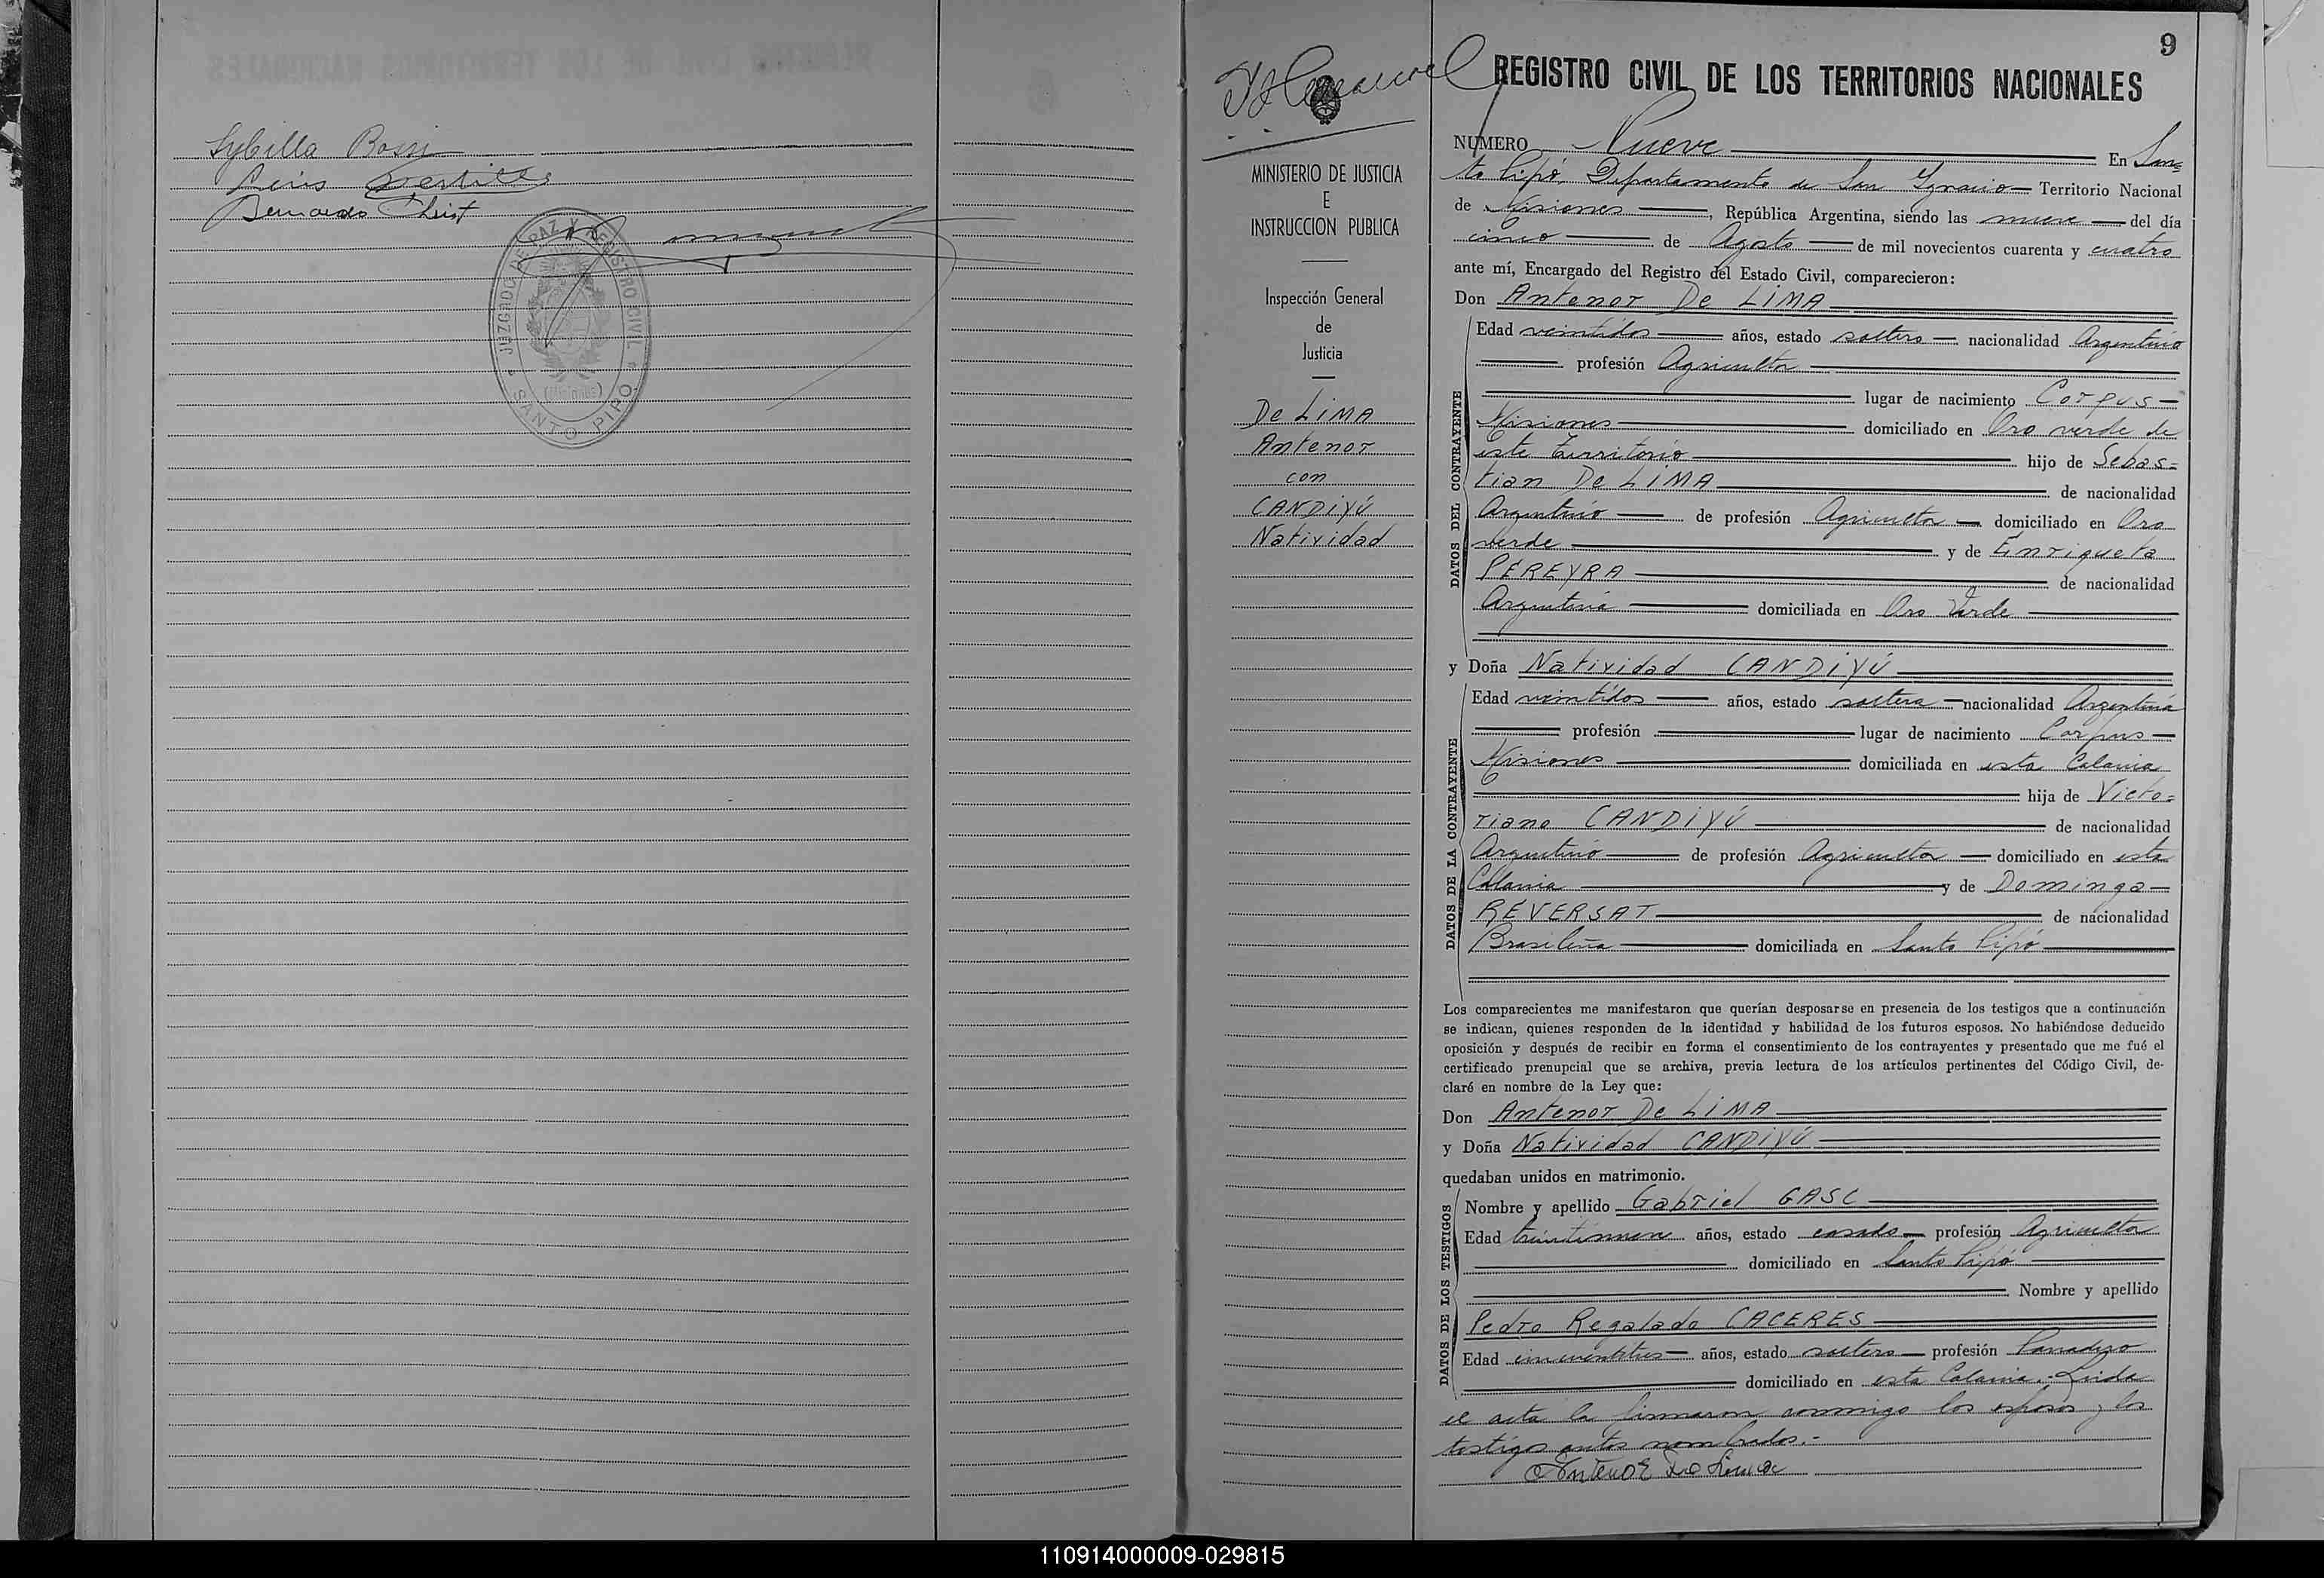 Sybilla Rossi
Luis
Bernardo Christ
JUZGADO DE PAZ Y REGISTRO CIVIL
(Misiones)
SANTO PIPÓ
9
REGISTRO CIVIL DE LOS TERRITORIOS NACIONALES
MINISTERIO DE JUSTICIA
E
INSTRUCCION PUBLICA
Inspección General
de
Justicia
De LiMA
Antenor
con
CANDiYÚ
Natividad
NUMERO Nueve En San=
to Pipó, Departamento de San Ignacio Territorio Nacional
de Misiones, República Argentina, siendo las nueve del día
cinco de Agosto de mil novecientos cuarenta y cuatro
ante mí, Encargado del Registro del Estado Civil, comparecieron:
Don Antenor De LiMA
DATOS DEL CONTRAYENTE
Edad veintidos años, estado soltero nacionalidad Argentino
profesión Agricultor
lugar de nacimiento Corpus
Misiones domiciliado en Oro verde de
este Territorio hijo de Sebas=
tian De LiMA de nacionalidad
Argentino de profesión Agricultor domiciliado en Oro
verde y de Enriqueta
PEREYRA de nacionalidad
Argentina domiciliada en Oro Verde
y Doña Natividad CANDiYÚ
DATOS DE LA CONTRAYENTE
Edad veintidos años, estado soltera nacionalidad Argentina
profesión lugar de nacimiento Corpus
Misiones domiciliada en esta Colonia
hija de Victo=
riano CANDiYÚ de nacionalidad
Argentino de profesión Agricultor domiciliado en esta
Colonia y de Dominga
REVERSAT de nacionalidad
Brasileña domiciliada en Santo Pipó
Los comparecientes me manifestaron que querían desposarse en presencia de los testigos que a continuación
se indican, quienes responden de la identidad y habilidad de los futuros esposos. No habiéndose deducido
oposición y después de recibir en forma el consentimiento de los contrayentes y presentado que me fué el
certificado prenupcial que se archiva, previa lectura de los artículos pertinentes del Código Civil, de-
claré en nombre de la Ley que:
Don Antenor De LiMA
y Doña Natividad CANDiYÚ
quedaban unidos en matrimonio.
DATOS DE LOS TESTIGOS
Nombre y apellido Gabriel GASC
Edad años, estado casado profesión Agricultor
domiciliado en Santo Pipó
Nombre y apellido
Pedro Regalado CACERES
Edad años, estado soltero profesión Panadero
domiciliado en esta Colonia. Leida
el acta la firmaron conmigo los esposos y los
testigos antes nombrados.-
Antenor De Lima
110914000009-029815